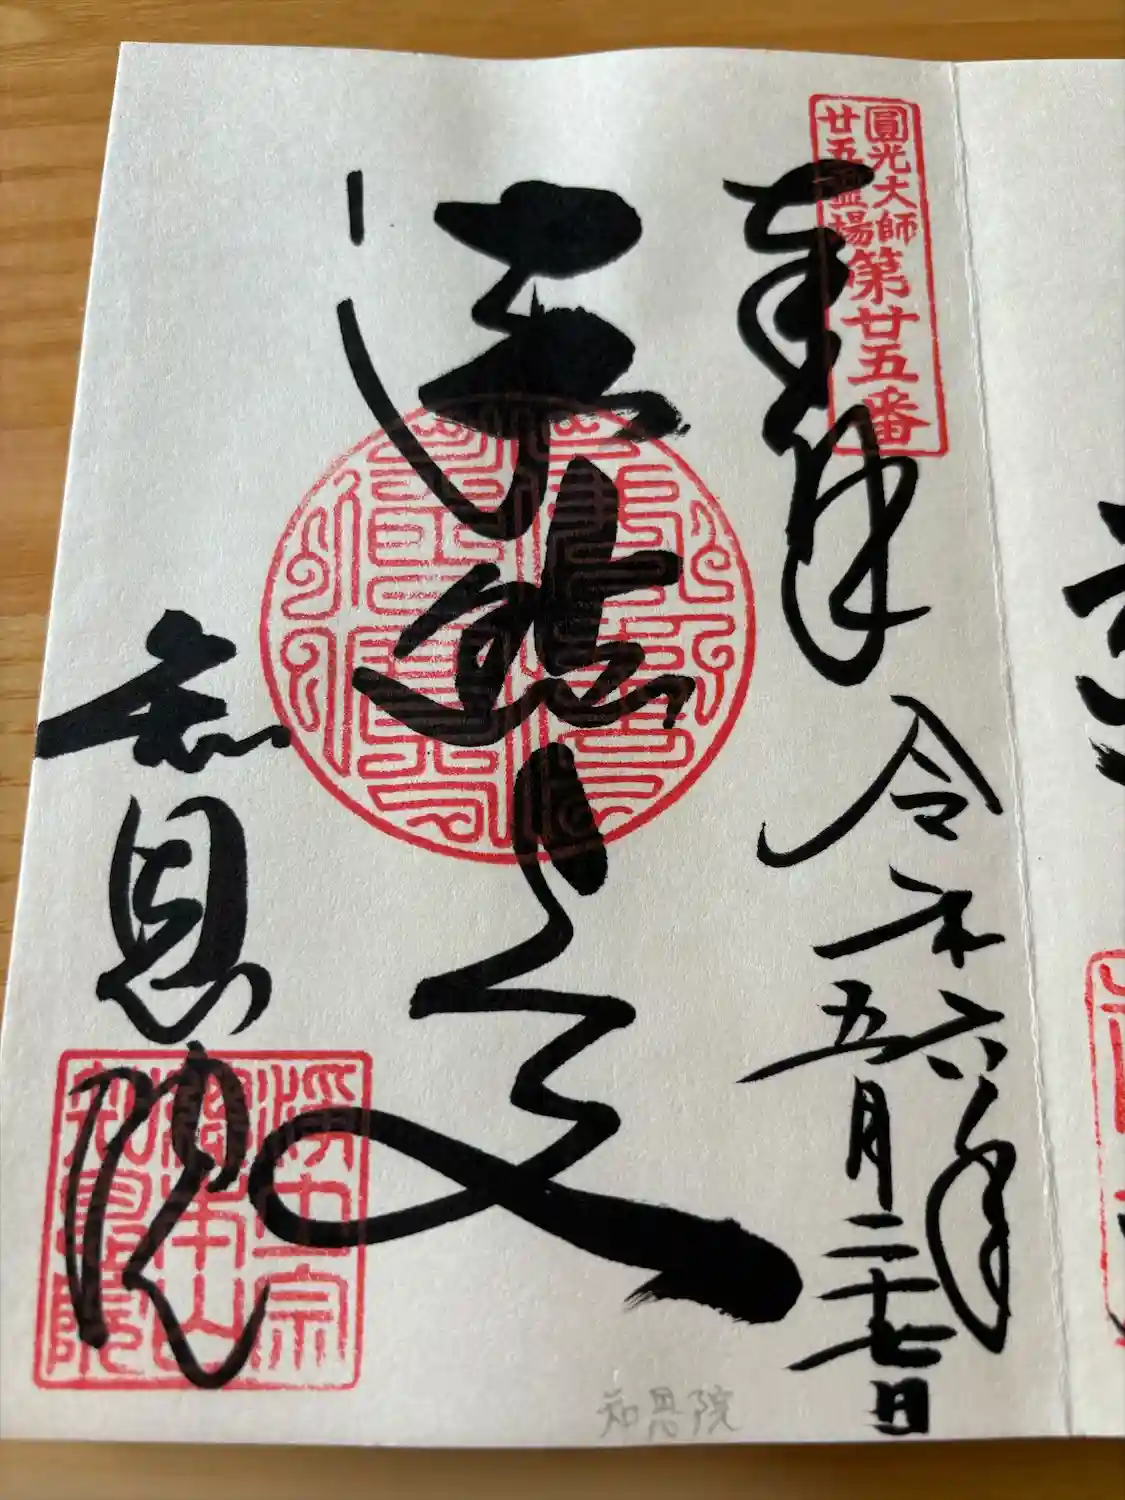 圓光大師
廿五霊場
第廿五番
奉拝
令和六年
五月二十七日
法然上人
知恩院
浄土宗
總本山
知恩院
知恩院